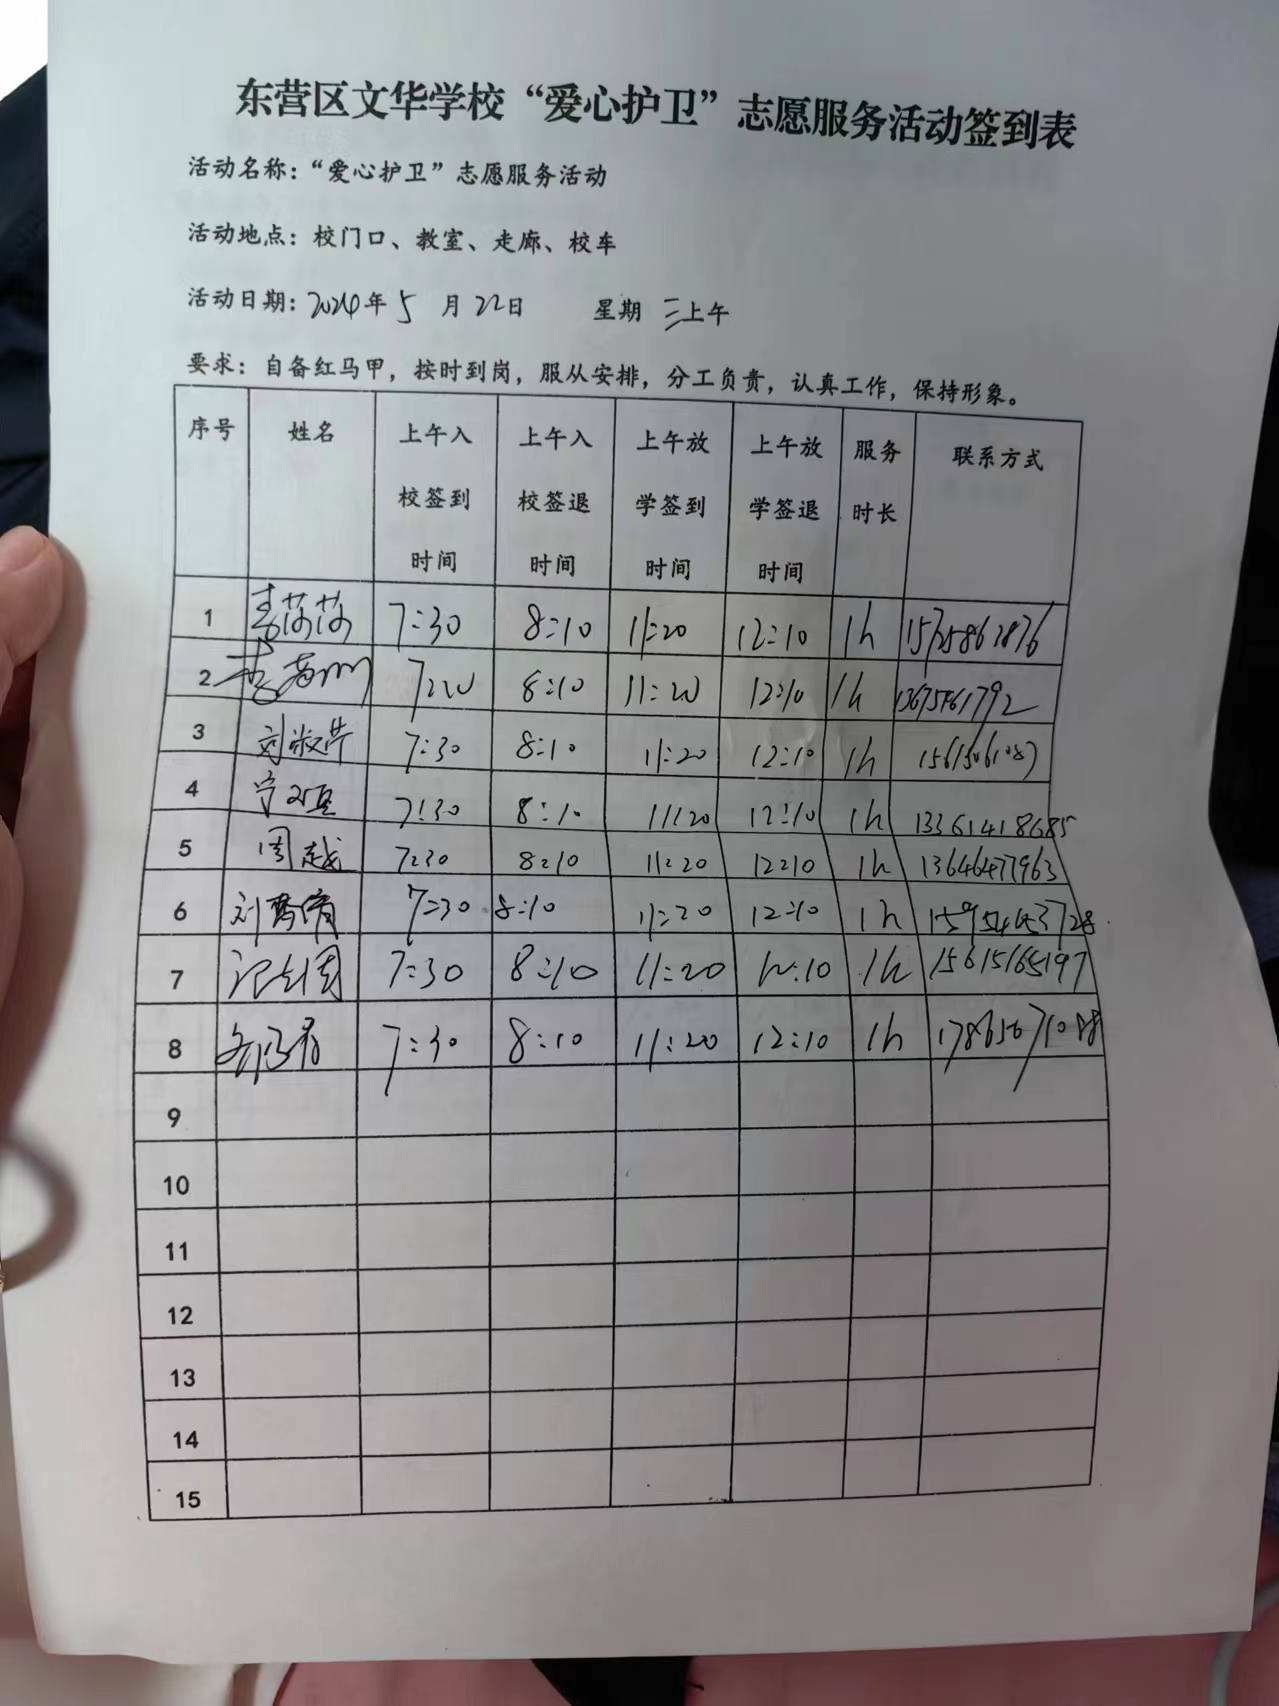 东营区文华学校“爱心护卫”志愿服务活动签到表
活动名称：“爱心护卫”志愿服务活动
活动地点：校门口、教室、走廊、校车
活动日期：2024年5月22日 星期三上午
要求：自备红马甲，按时到岗，服从安排，分工负责，认真工作，保持形象。
序号 姓名 上午入校签到时间 上午入校签退时间 上午放学签到时间 上午放学签退时间 服务时长 联系方式
1 李莎莎 7:30 8:10 11:20 12:10 1h
2 8:10 11:20 12:10 1h
3 刘淑芹 7:30 8:10 11:20 12:10 1h
4 7:30 8:10 11:20 12:10 1h 13361418685
5 周越 7:30 8:10 11:20 12:10 1h 13646477963
6 7:30 8:10 11:20 12:10 1h 15954653728
7 7:30 8:10 11:20 12:10 1h 15615165197
8 7:30 8:10 11:20 12:10 1h
9
10
11
12
13
14
15